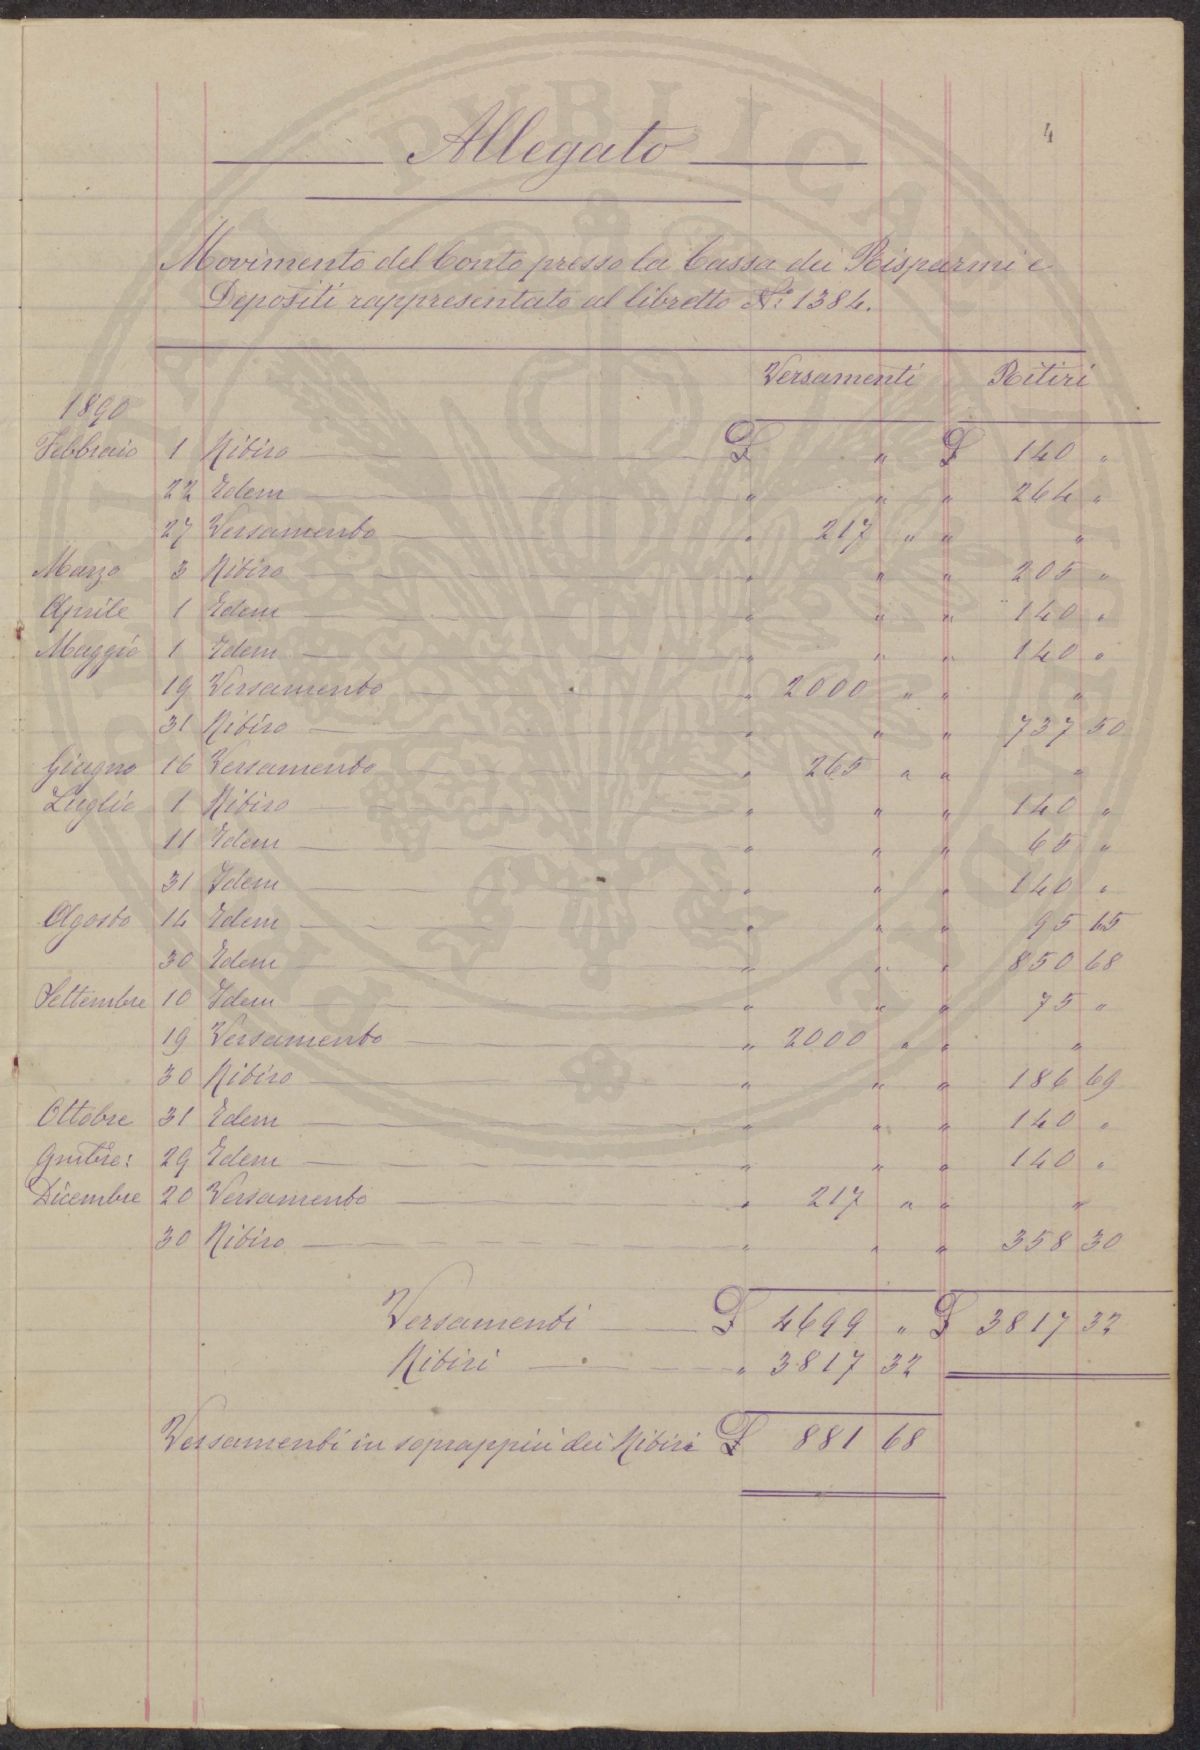 4
Allegato
Movimento del Conto presso la Cassa dei Risparmi e
Depositi rappresentato al libretto No. 1384.
Versamenti Ritiri
1890
Febbraio 1 Ritiro £ " £ 140 "
22 Idem " " " 264 "
27 Versamento " 217 " " "
Marzo 3 Ritiro " " " 205 "
Aprile 1 Idem " " " 140 "
Maggio 1 Idem " " " 140 "
19 Versamento " 2000 " " "
31 Ritiro " " " 737 50
Giugno 16 Versamento " 265 " " "
Luglio 1 Ritiro " " " 140 "
11 Idem " " " 65 "
31 Idem " " " 140 "
Agosto 14 Idem " " " 95 65
30 Idem " " " 850 68
Settembre 10 Idem " " " 75 "
19 Versamento " 2000 " " "
30 Ritiro " " " 186 69
Ottobre 31 Idem " " " 140 "
9mbre: 29 Idem " " " 140 "
Dicembre 20 Versamento " 217 " " "
30 Ritiro " " " 358 30
Versamenti £ 4699 " £ 3817 32
Ritiri " 3817 32
Versamenti in soprappiù dei Ritiri £ 881 68